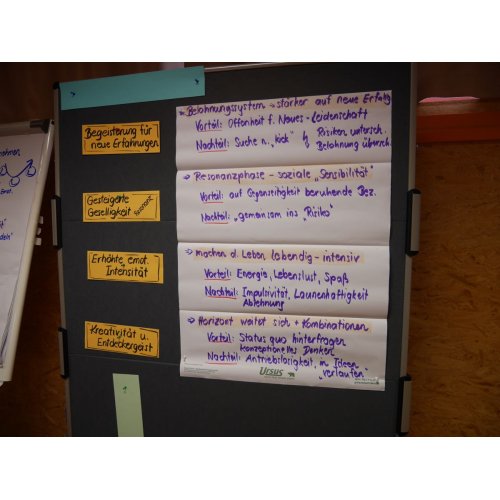 Begeisterung für
neue Erfahrungen
Belohnungssystem → stärker auf neue Erfahrg
Vorteil: Offenheit f. Neues + Leidenschaft
Nachteil: Suche n. „Kick" Risiken untersch.
Belohnung übersch.
Gesteigerte
Geselligkeit Resonanz
Resonanzphase - soziale „Sensibilität"
Vorteil: auf Gegenseitigkeit beruhende Bez.
Nachteil: „gemeinsam ins „Risiko"
Erhöhte emot.
Intensität
→ machen d. Leben lebendig - intensiv
Vorteil: Energie, Lebenslust, Spaß
Nachteil: Impulsivität, Launenhaftigkeit
Ablehnung
Kreativität u.
Entdeckergeist
→ Horizont weitet sich + Kombinationen
Vorteil: Status quo hinterfragen
konzeptionelles Denken
Nachteil: Antriebslosigkeit, in Ideen
„verlaufen"
URSUS